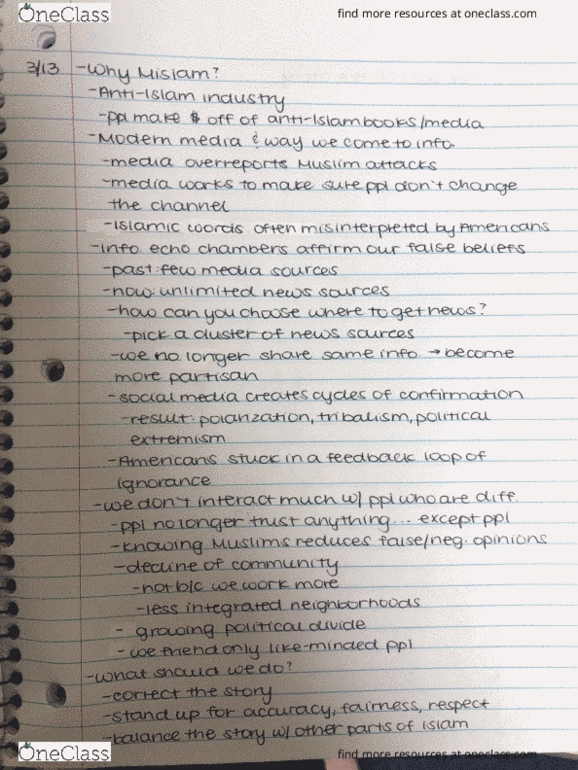 OneClass
find more resources at oneclass.com
3/13 -Why Mislam?
-Anti-Islam industry
-ppl make $ off of anti-Islam books/media
-Modern media & way we come to info.
-media overreports Muslim attacks
-media works to make sure ppl don't change
the channel
-Islamic words often misinterpreted by Americans
-info. echo chambers affirm our false beliefs
-past: few media sources
-now: unlimited news sources
-how can you choose where to get news?
-pick a cluster of news sources
-we no longer share same info → become
more partisan
-social media creates cycles of confirmation
-result: polarization, tribalism, political
extremism
-Americans stuck in a feedback loop of
ignorance
-we don't interact much w/ ppl who are diff.
-ppl no longer trust anything... except ppl
-knowing Muslims reduces false/neg. opinions
-decline of community
-not b/c we work more
-less integrated neighborhoods
- growing political divide
-we friend only like-minded ppl
-what should we do?
-correct the story
-stand up for accuracy, fairness, respect
-balance the story w/ other parts of islam
OneClass
find more resources at oneclass.com